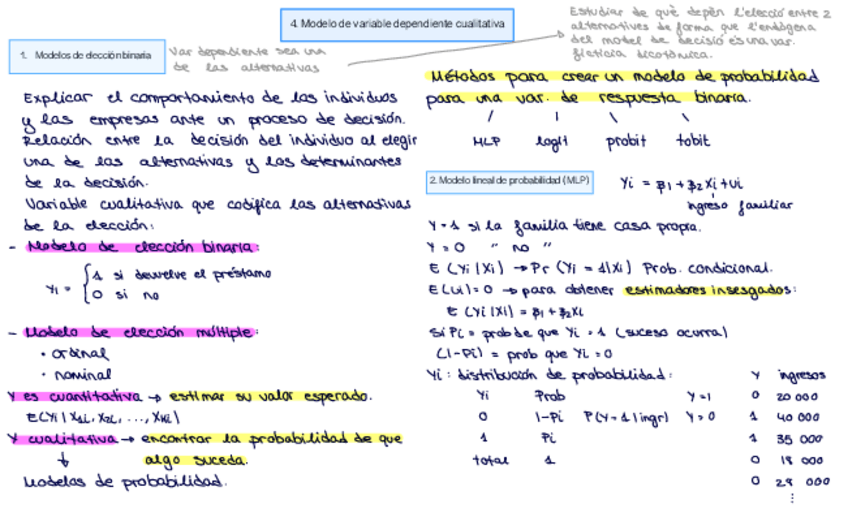 4. Modelo de variable dependiente cualitativa
Estudiar de què depèn l'elecció entre 2
alternatives de forma que l'endògena
del model de decisió és una var.
ficticia dicotòmica.
1. Modelos de elección binaria
Var dependiente sea una
de las alternativas
Explicar el comportamiento de los individuos
y las empresas ante un proceso de decisión.
Relación entre la decisión del individuo al elegir
una de las alternativas y los determinantes
de la decisión.
Variable cualitativa que codifica las alternativas
de la elección:
- Modelo de elección binaria:
Yi = { 1 si devuelve el préstamo
0 si no
- Modelo de elección múltiple:
• ordinal
• nominal
Y es cuantitativa → estimar su valor esperado.
E(Yi | X1i, X2i, ..., XKi)
Y cualitativa → encontrar la probabilidad de que
algo suceda.
Modelos de probabilidad.
Métodos para crear un modelo de probabilidad
para una var. de respuesta binaria.
MLP logit probit tobit
2. Modelo lineal de probabilidad (MLP)
Yi = β1 + β2Xi + ui
ingreso familiar
Y = 1 si la familia tiene casa propia.
Y = 0 " no "
E (Yi | Xi) → Pr (Yi = 1|Xi) Prob. condicional.
E(ui) = 0 → para obtener estimadores insesgados:
E (Yi | Xi) = β1 + β2Xi
Si Pi = prob de que Yi = 1 (suceso ocurra)
(1-Pi) = prob que Yi = 0
Yi: distribución de probabilidad:
Yi Prob
0 1-Pi
1 Pi
total 1
P(Y=1|ingr)
Y=1
Y=0
Y ingresos
0 20 000
1 40 000
1 35 000
0 18 000
0 28 000
⋮